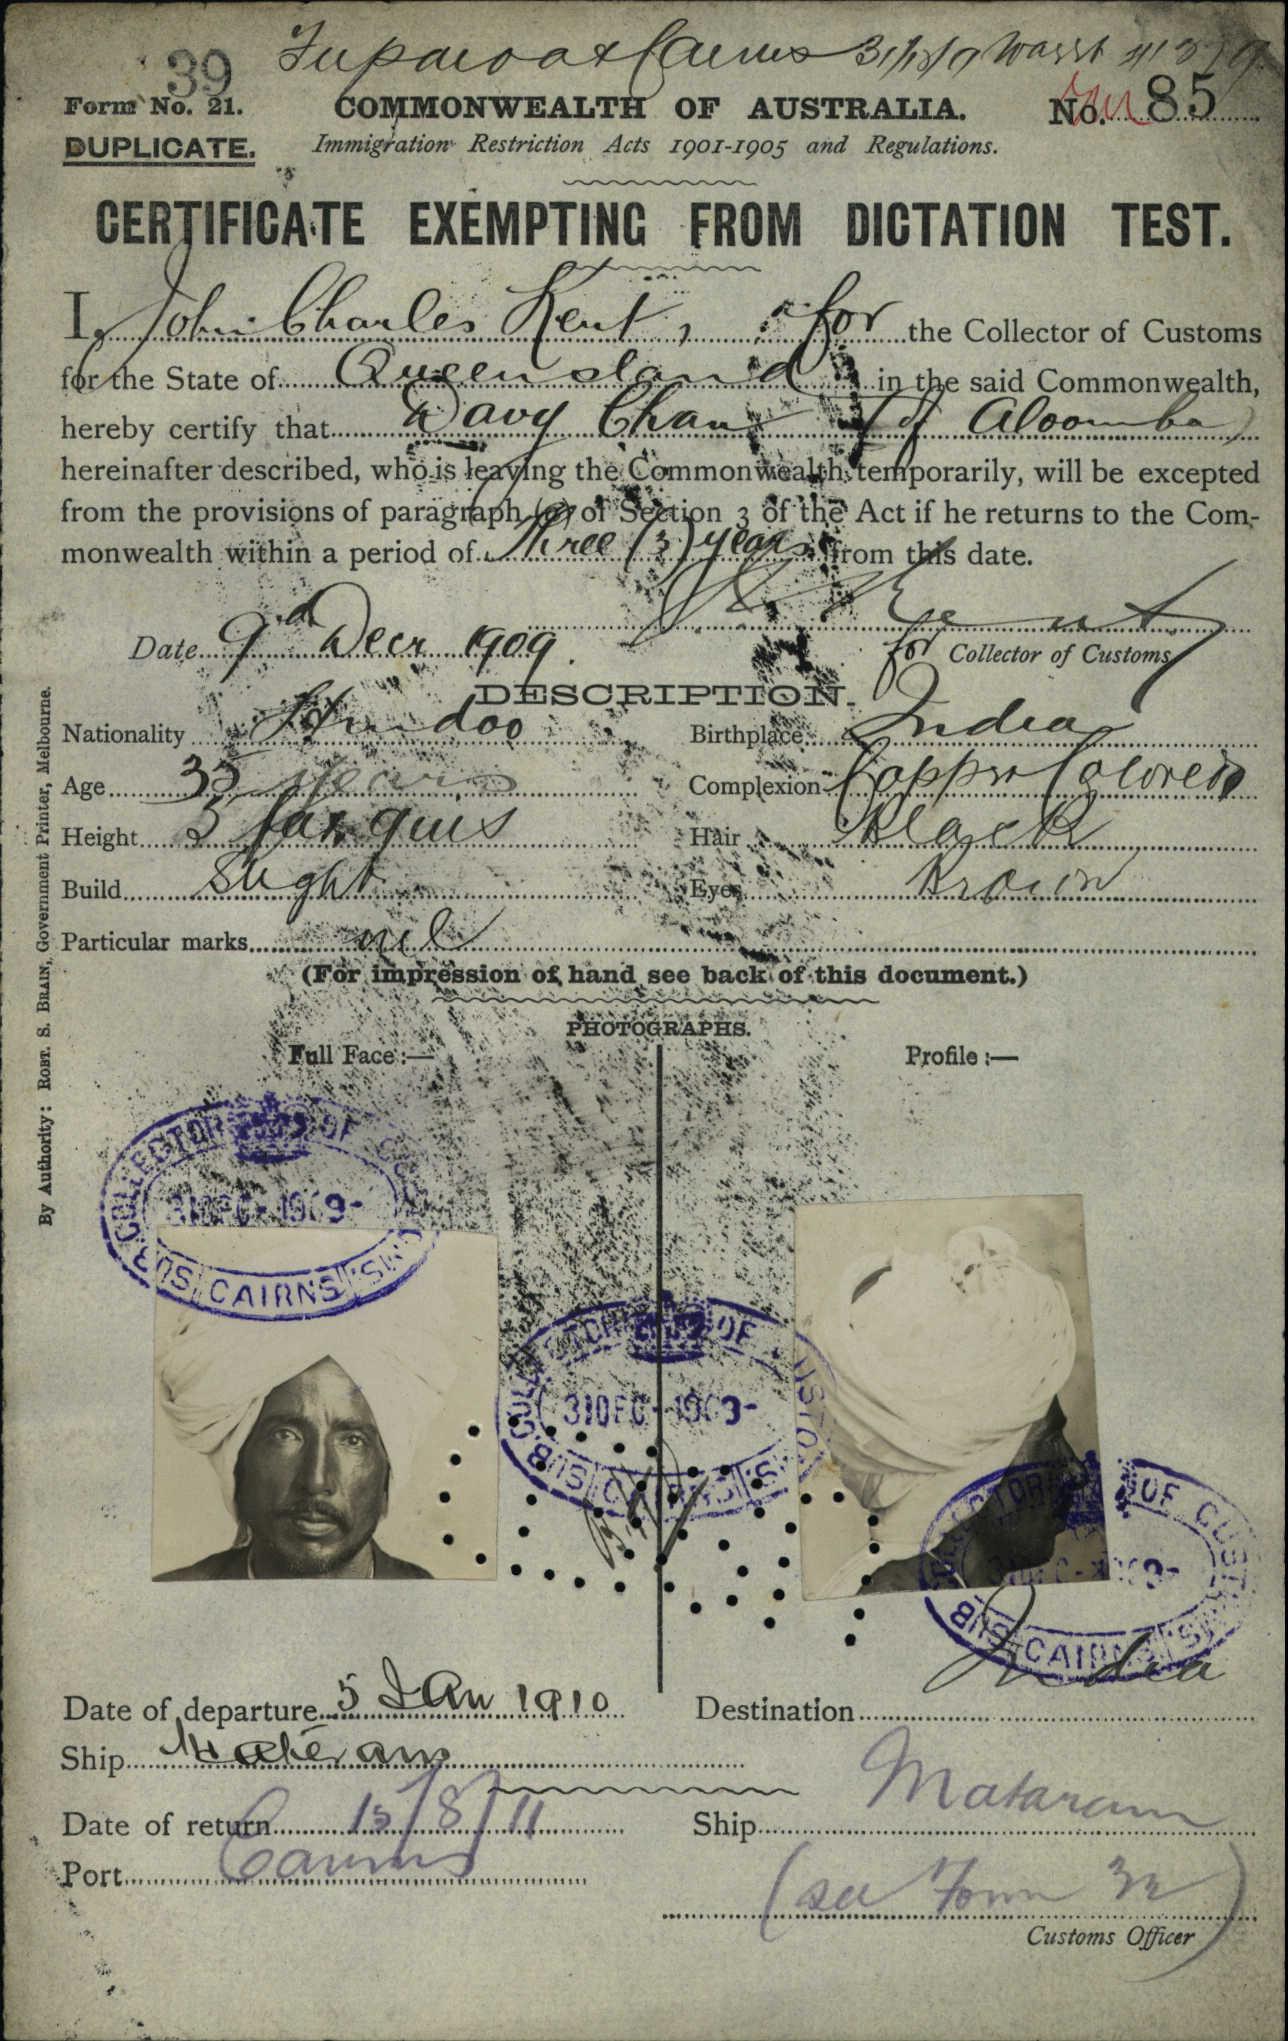 39
Cairns 31/12/9
Form No. 21.
COMMONWEALTH OF AUSTRALIA.
No. 85
DUPLICATE.
Immigration Restriction Acts 1901-1905 and Regulations.
CERTIFICATE EXEMPTING FROM DICTATION TEST.
I, John Charles Kent, for the Collector of Customs
for the State of Queensland in the said Commonwealth,
hereby certify that Davy Chan (of Aloomba)
hereinafter described, who is leaving the Commonwealth temporarily, will be excepted
from the provisions of paragraph (a) of Section 3 of the Act if he returns to the Com-
monwealth within a period of Three (3) years from this date.
Kent
Date 9th Decr 1909. for Collector of Customs
DESCRIPTION.
Nationality Hindoo Birthplace India
Age 35 years Complexion Copper Colored
Height 5 feet Hair Black
Build Slight Eyes Brown
Particular marks nil
(For impression of hand see back of this document.)
PHOTOGRAPHS.
Full Face :— Profile :—
SUB COLLECTOR OF CUSTOMS
31 DEC 1909
CAIRNS
SUB COLLECTOR OF CUSTOMS
31 DEC 1909
CAIRNS
SUB COLLECTOR OF CUSTOMS
31 DEC 1909
CAIRNS
Date of departure 5 Jan 1910 Destination India
Ship Mataram
Date of return 15/8/11 Ship Mataram
Port Cairns
(see Form 32)
Customs Officer
By Authority: ROBT. S. BRAIN, Government Printer, Melbourne.